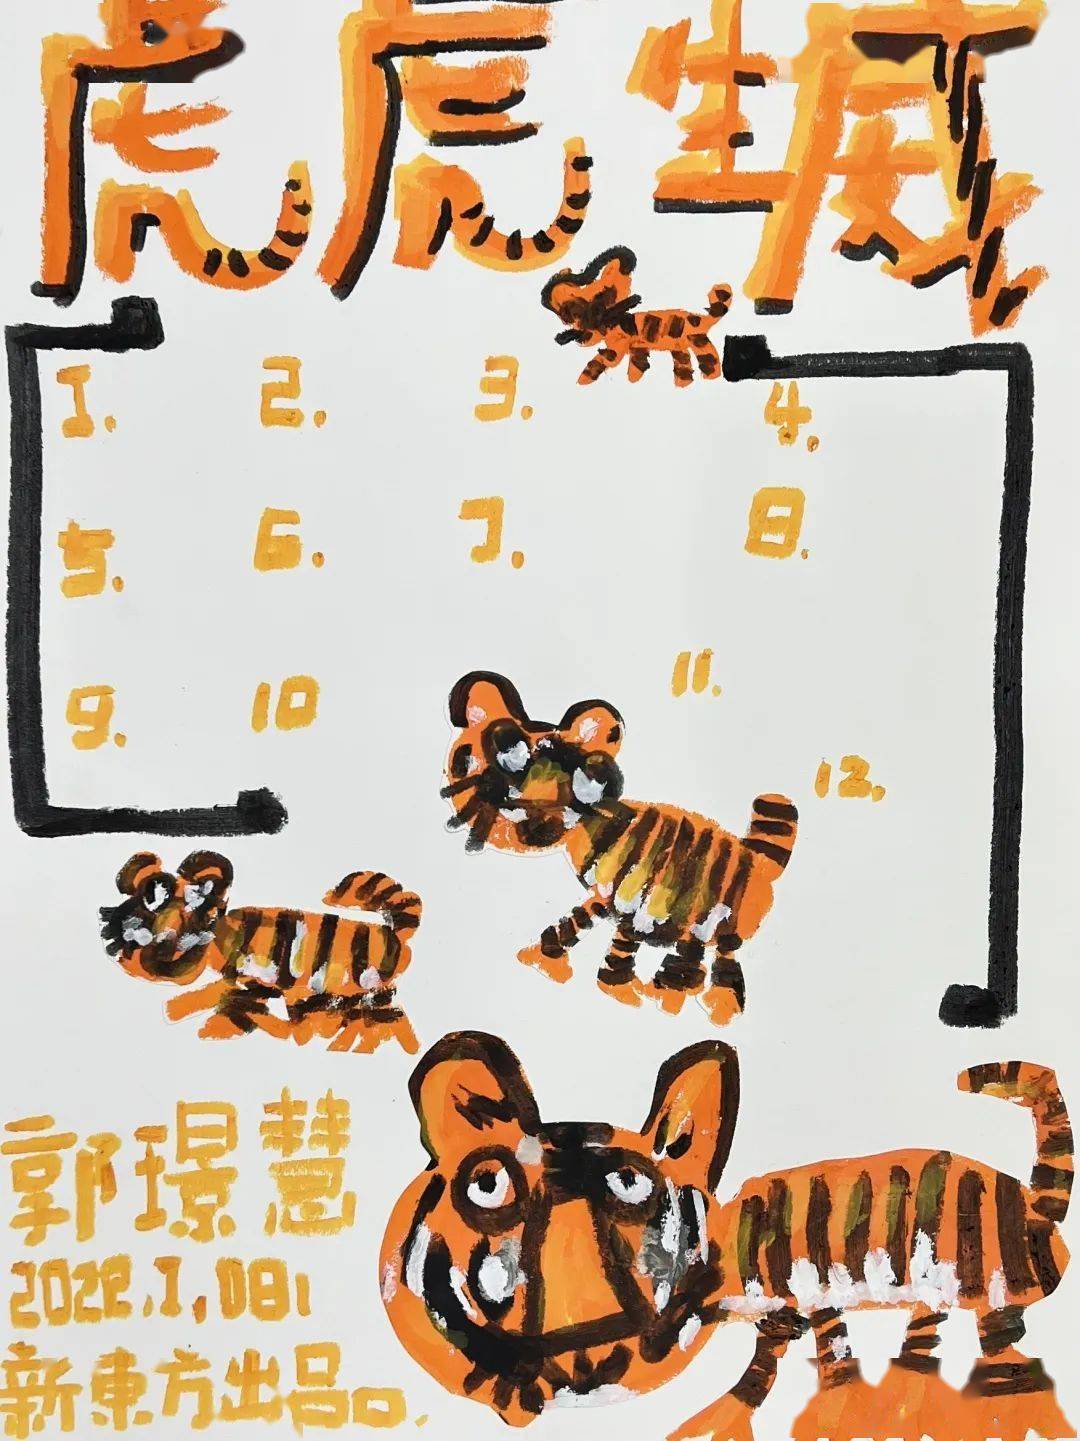 虎虎生威
1. 2. 3. 4.
5. 6. 7. 8.
9. 10 11.
12.
郭璟慧
2022.1.08
新東方出品。